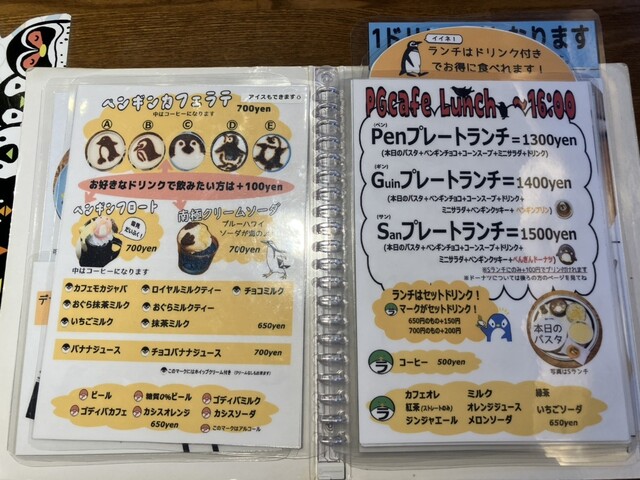 ペンギンカフェラテ
アイスもできます。
700yen
中はコーヒーになります
A B C D E
お好きなドリンクで飲みたい方は+100yen
ペンギンフロート
700yen
中はコーヒーになります
南極クリームソーダ
ブルーハワイ
700yen
カフェモカジャバ
ロイヤルミルクティー
チョコミルク
おぐら抹茶ミルク
おぐらミルクティー
いちごミルク
抹茶ミルク
650yen
バナナジュース
チョコバナナジュース
700yen
このマークにはホイップクリーム付き
ビール
糖質0%ビール
ゴディバミルク
ゴディバカフェ
カシスオレンジ
カシスソーダ
650yen
このマークはアルコール
イイネ!
ランチはドリンク付き
でお得に食べれます!
PGcafe Lunch ~16:00
(ペン)
Penプレートランチ=1300yen
(本日のパスタ+ペンギンチョコ+コーンスープ+ミニサラダ+ドリンク)
(ギン)
Guinプレートランチ=1400yen
(本日のパスタ+ペンギンチョコ+コーンスープ+ドリンク+
ミニサラダ+ペンギンクッキー+ペンギンプリン)
(サン)
Sanプレートランチ=1500yen
(本日のパスタ+ペンギンチョコ+コーンスープ+ドリンク+
ミニサラダ+ペンギンクッキー+ぺんぎんドーナツ)
※Sランチにのみ+100円でプリン付けれます
※ドーナツについては後ろの方のページを見てね
ランチはセットドリンク!
マークがセットドリンク!
650円のもの+150円
700円のもの+200円
本日の
パスタ
写真はSランチ
ラ
コーヒー 500yen
ラ
カフェオレ
ミルク
緑茶
紅茶(ストレートのみ)
オレンジジュース
いちごソーダ
ジンジャエール
メロンソーダ
650yen